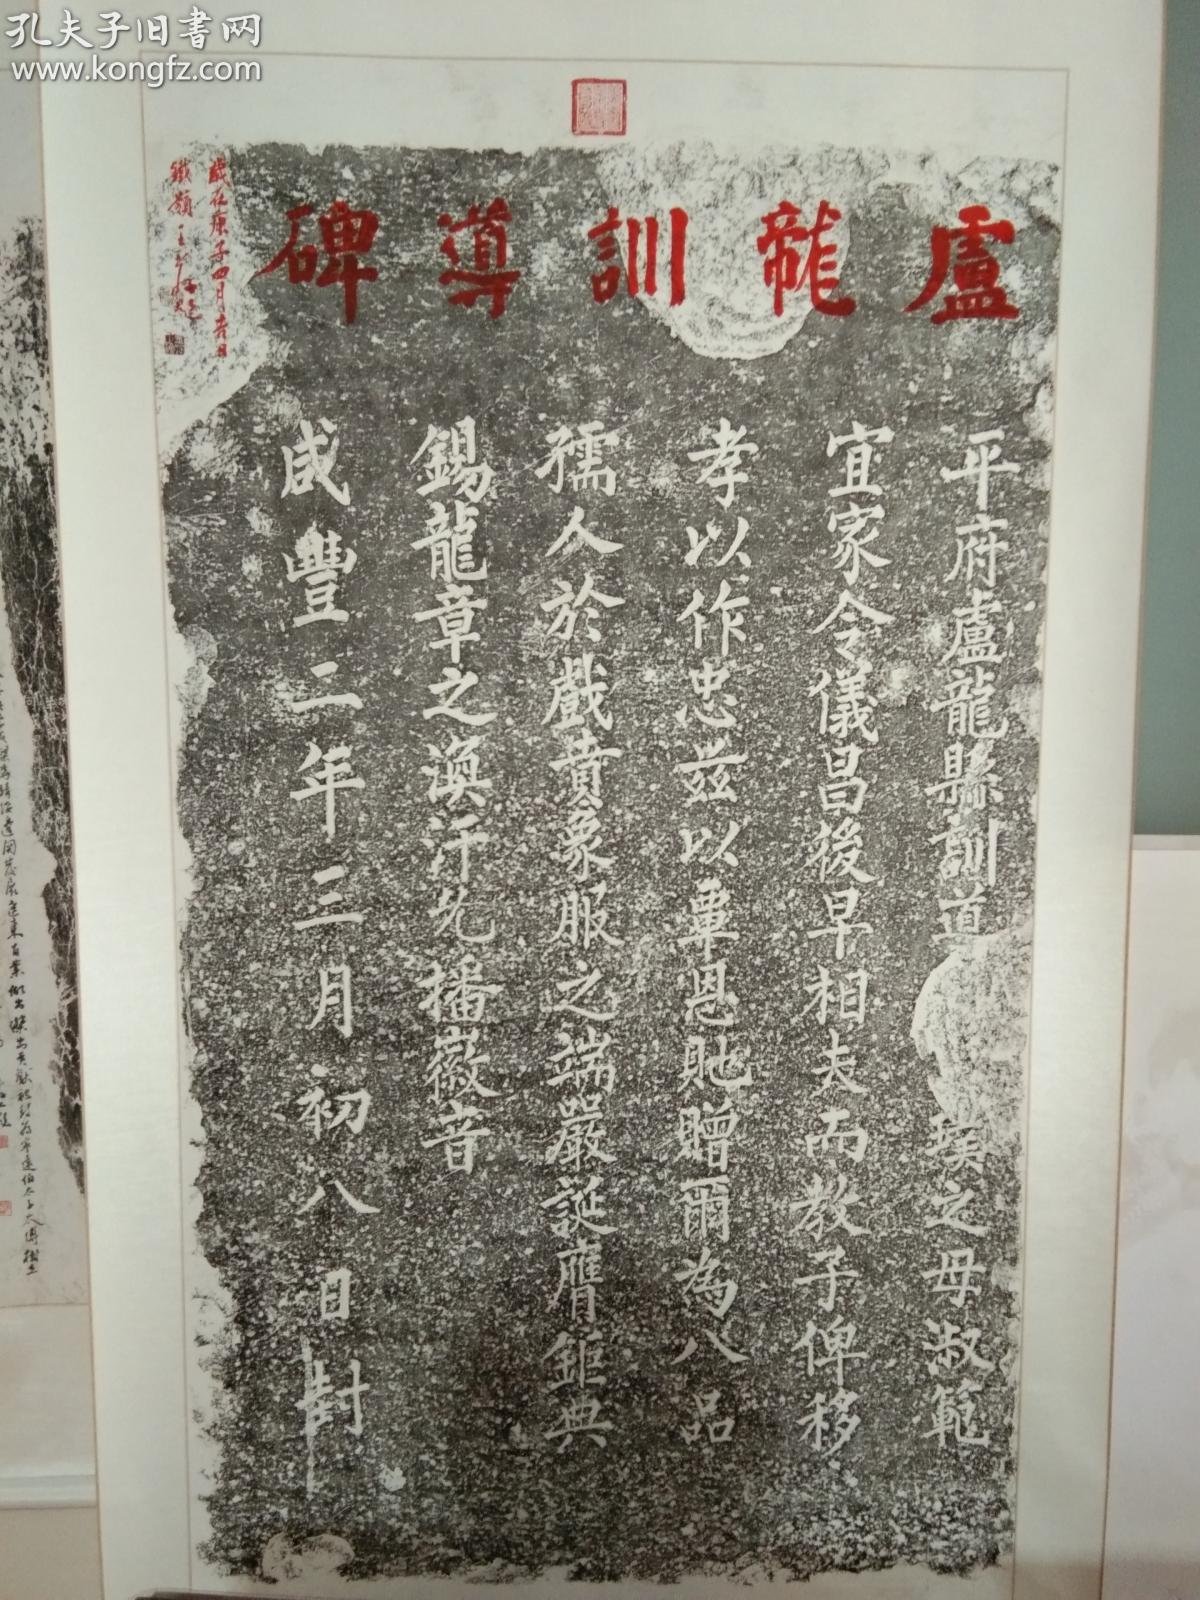 孔夫子旧書网
www.kongfz.com
盧龍訓導碑
歲在庚子四月吉日
鐵嶺王
平府盧龍縣訓道 埃之母淑範
宜家令儀昌後早相夫而教子俾移
孝以作忠茲以覃恩貤贈爾為八品
孺人於戲賁象服之端嚴誕膺鉅典
錫龍章之渙汗允播徽音
咸豐二年三月初八日封